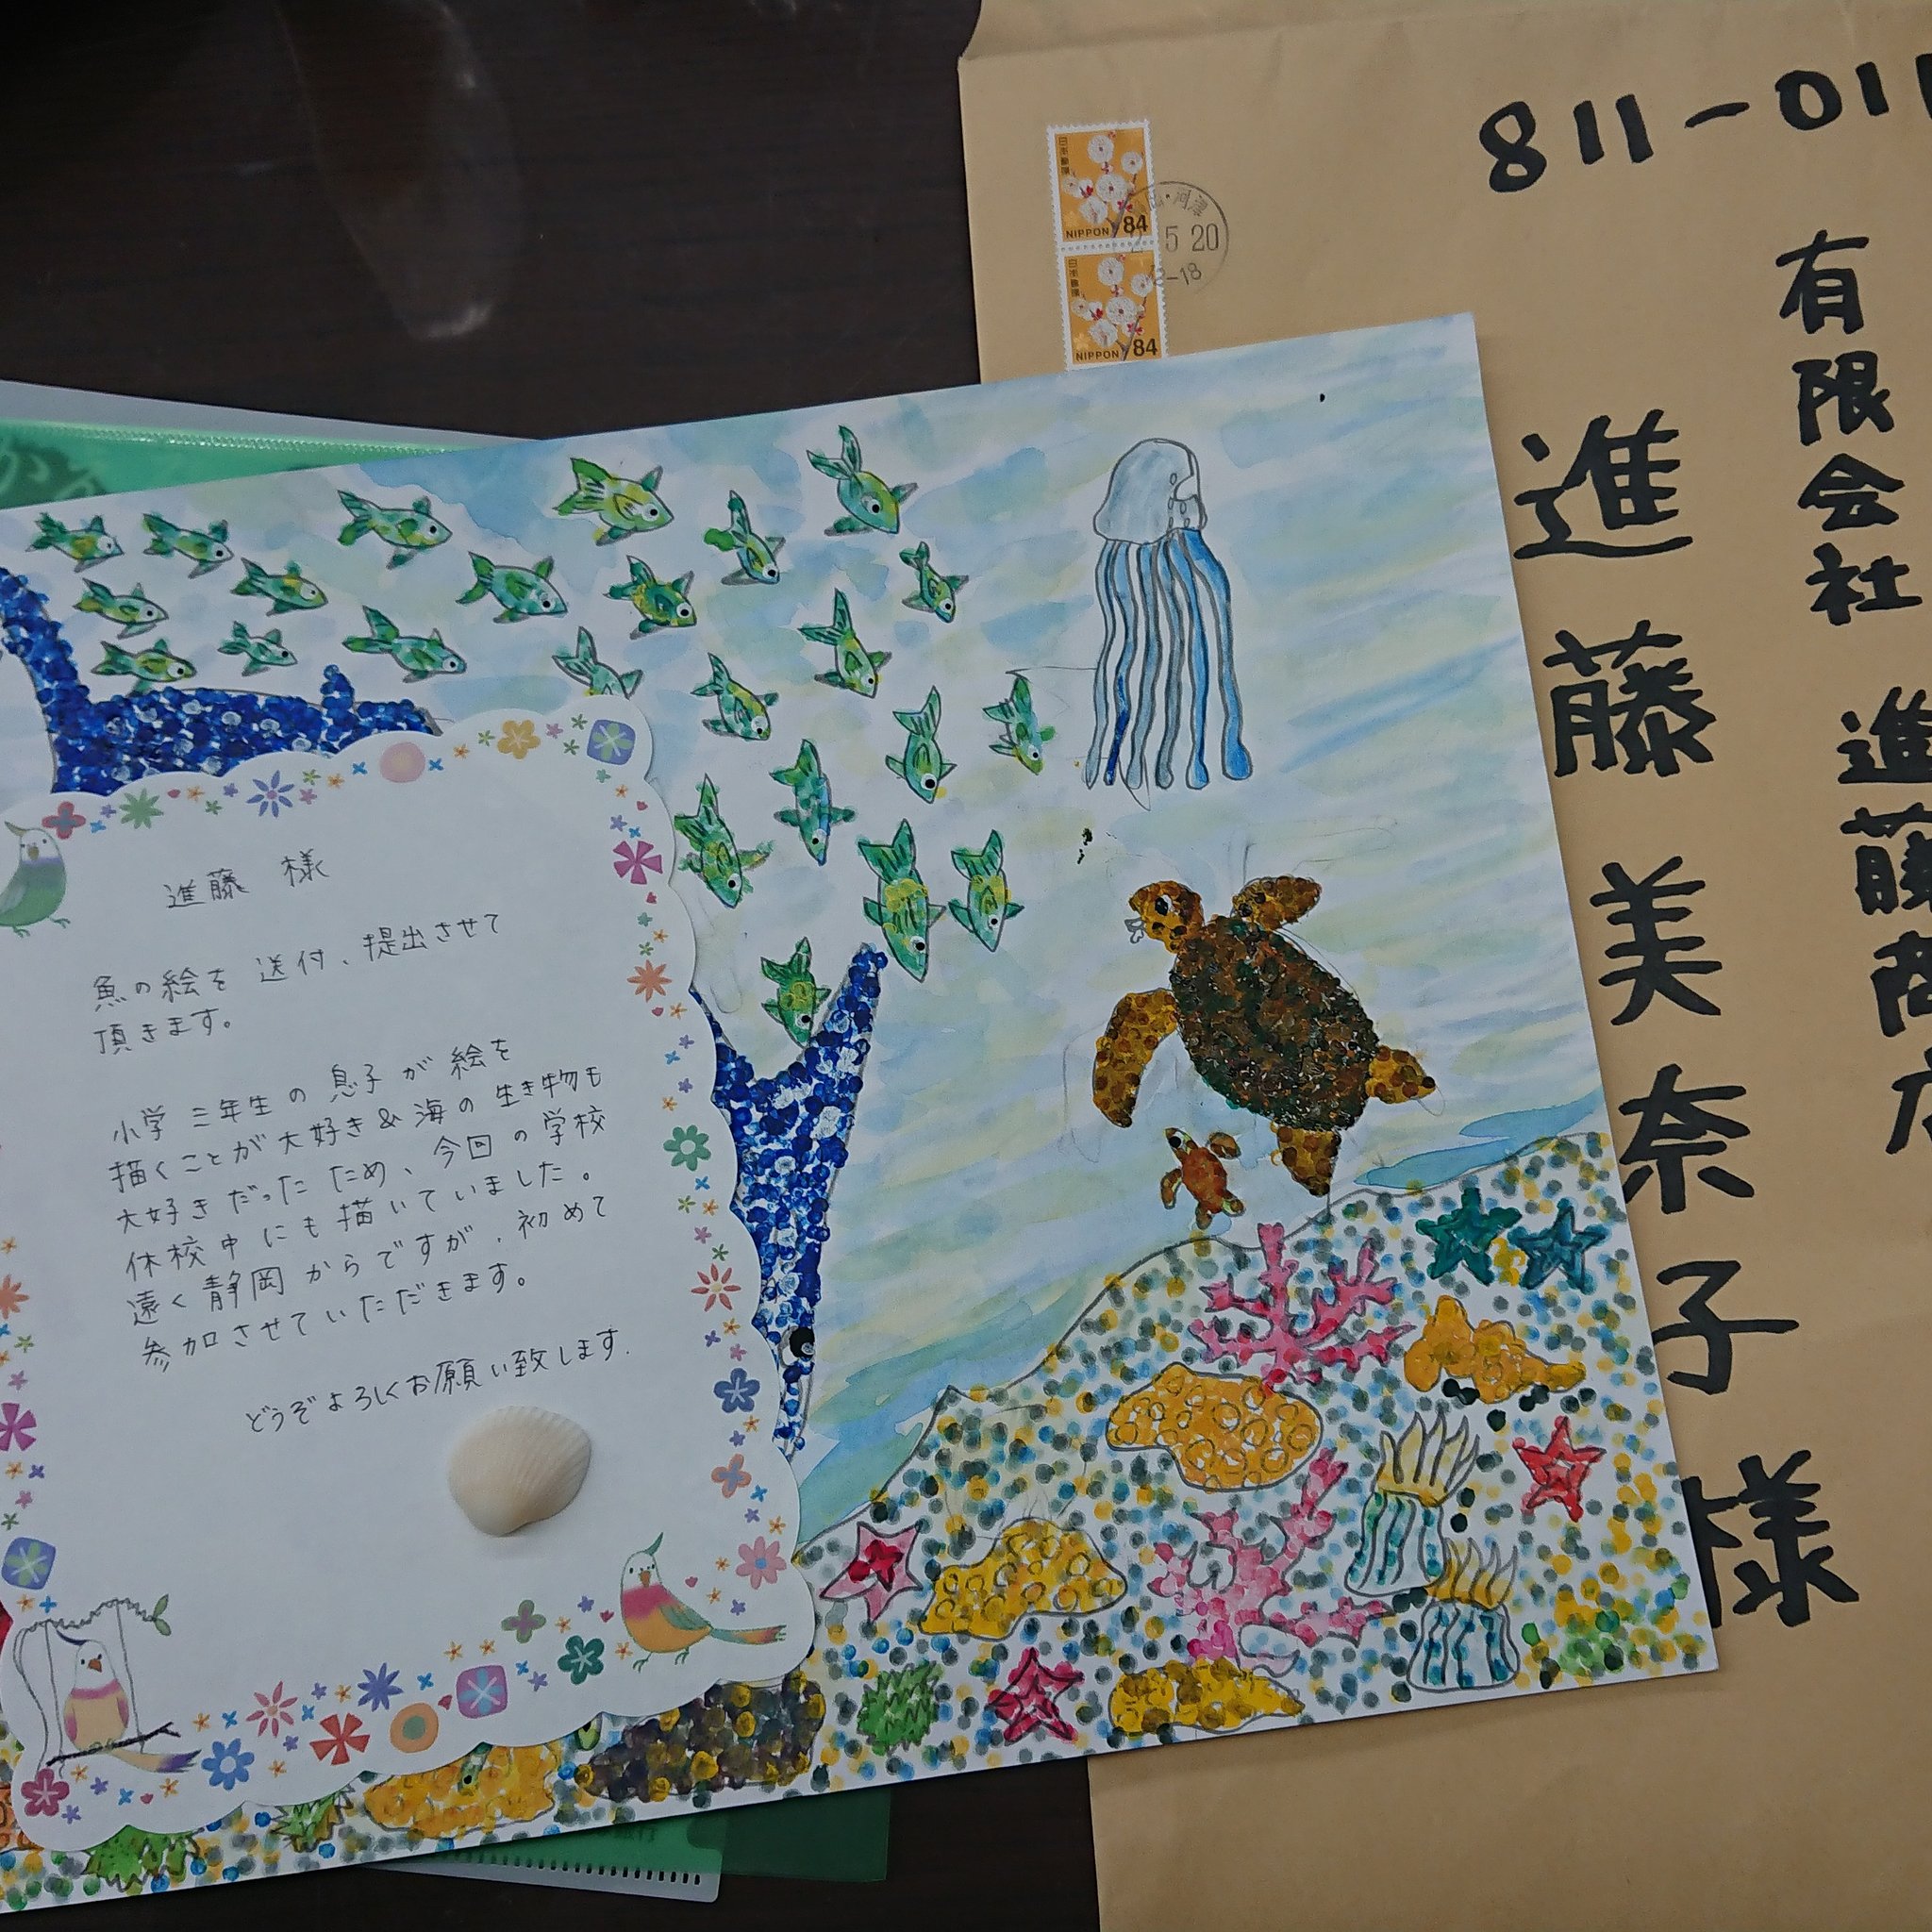 811-011
有限会社 進藤商店
進藤美奈子様
日本郵便
NIPPON 84
日本郵便
NIPPON 84
河津
2 5 20
12-18
進藤 様
魚の絵を 送付、提出させて
頂きます。
小学 三年生 の 息子 が 絵を
描くことが大好き&海の 生き物も
大好きだった ため、今回 の 学校
休校中 にも 描いていました。
遠く静岡からですが、初めて
参加させていただきます。
どうぞよろしくお願い致します.